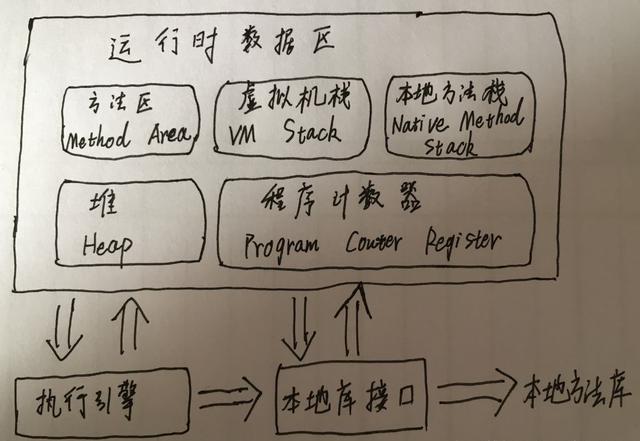 运行时数据区
方法区
Method Area
虚拟机栈
VM Stack
本地方法栈
Native Method
Stack
堆
Heap
程序计数器
Program Couter Register
执行引擎
本地库接口
本地方法库